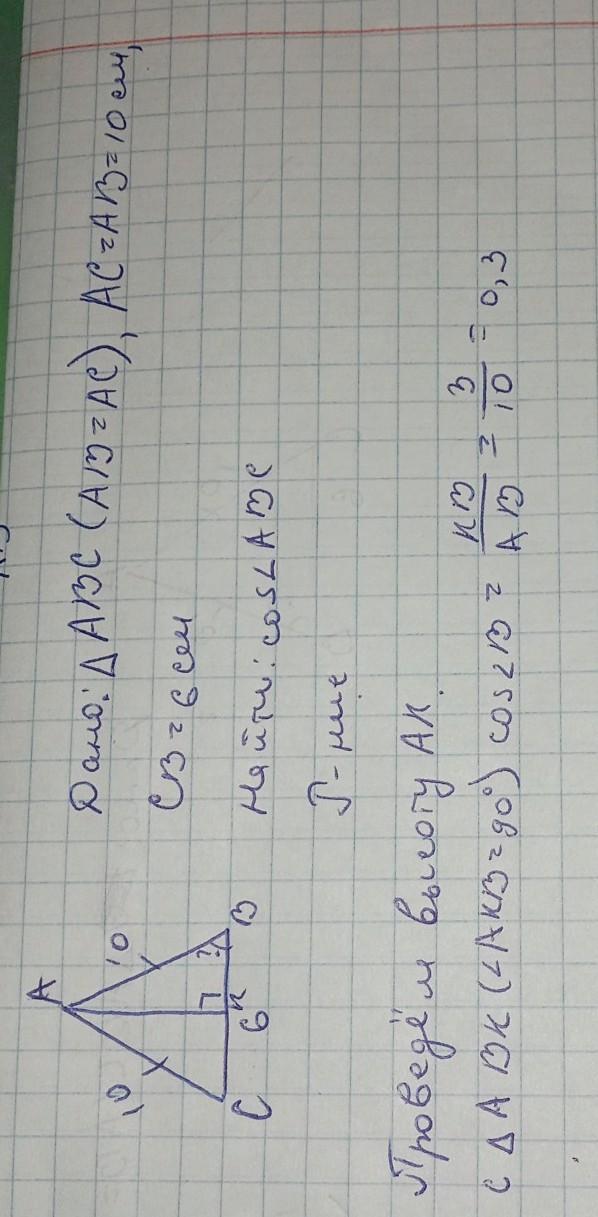 A
10
10
?
C
6
K
B
Дано: ΔABC (AB=AC), AC=AB=10 см,
CB=6 см
Найти: cos∠ABC
Р-ние
Проведём высоту AK.
С ΔABK (∠AKB=90°) cos∠B = KB/AB = 3/10 = 0,3